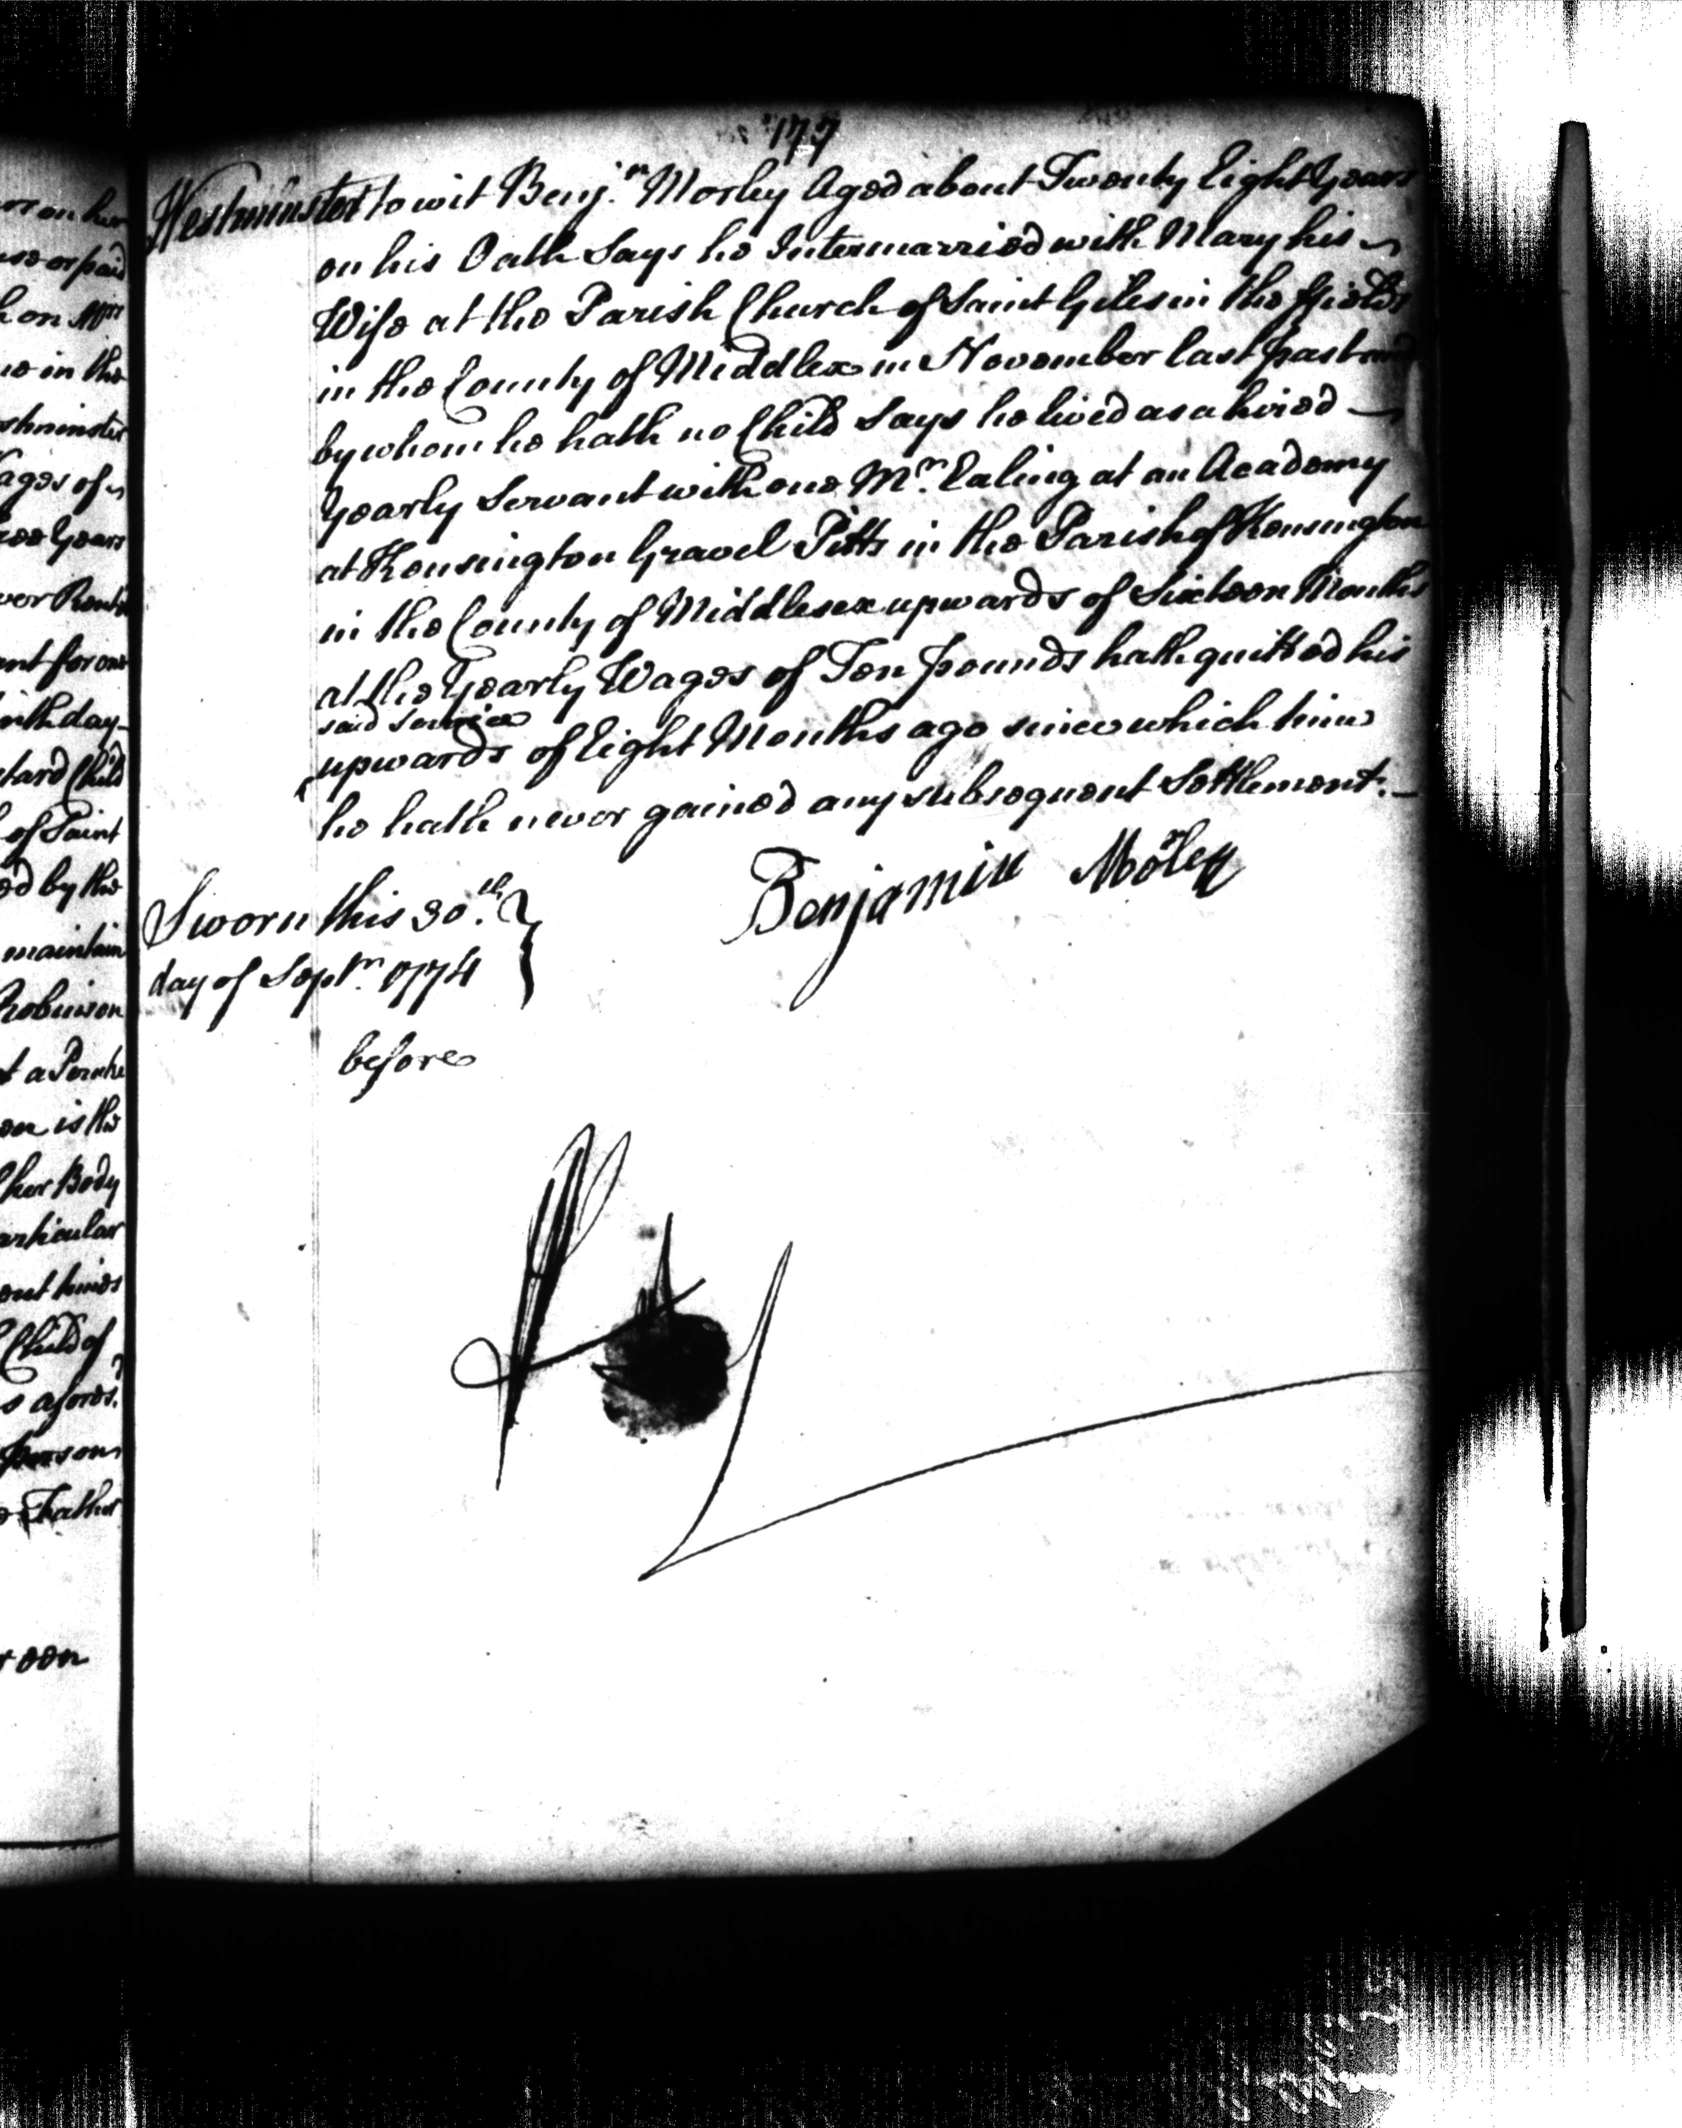 rs on her
use or paid
h on Mrs
ue in the
stminster
Wages of
ree Years
ever Rented
ent for one
ninth day
stard Child
of Saint
ed by the
maintain
Robinson
t a Peruke
on is the
her Body
articular
ent times
Child of
s afores.d
person
Father
177
Westminster to wit Benj.n Morley Aged about Twenty Eight Years
on his Oath Says he Intermarried with Mary his
Wife at the Parish Church of Saint Giles in the ffields
in the County of Middlex in November last past and
by whom he hath no Child Says he lived as a hired
Yearly Servant with one Mr. Ealing at an Academy
at Kensington Gravel Pitts in the Parish of Kensington
in the County of Middlesex upwards of Sixteen Months
at the Yearly Wages of Ten pounds hath quitted his
said Service
upwards of Eight Months ago since which time
he hath never gained any subsequent Settlement.
Benjamin Morley
Sworn this 30.th
day of Septr. 1774
before